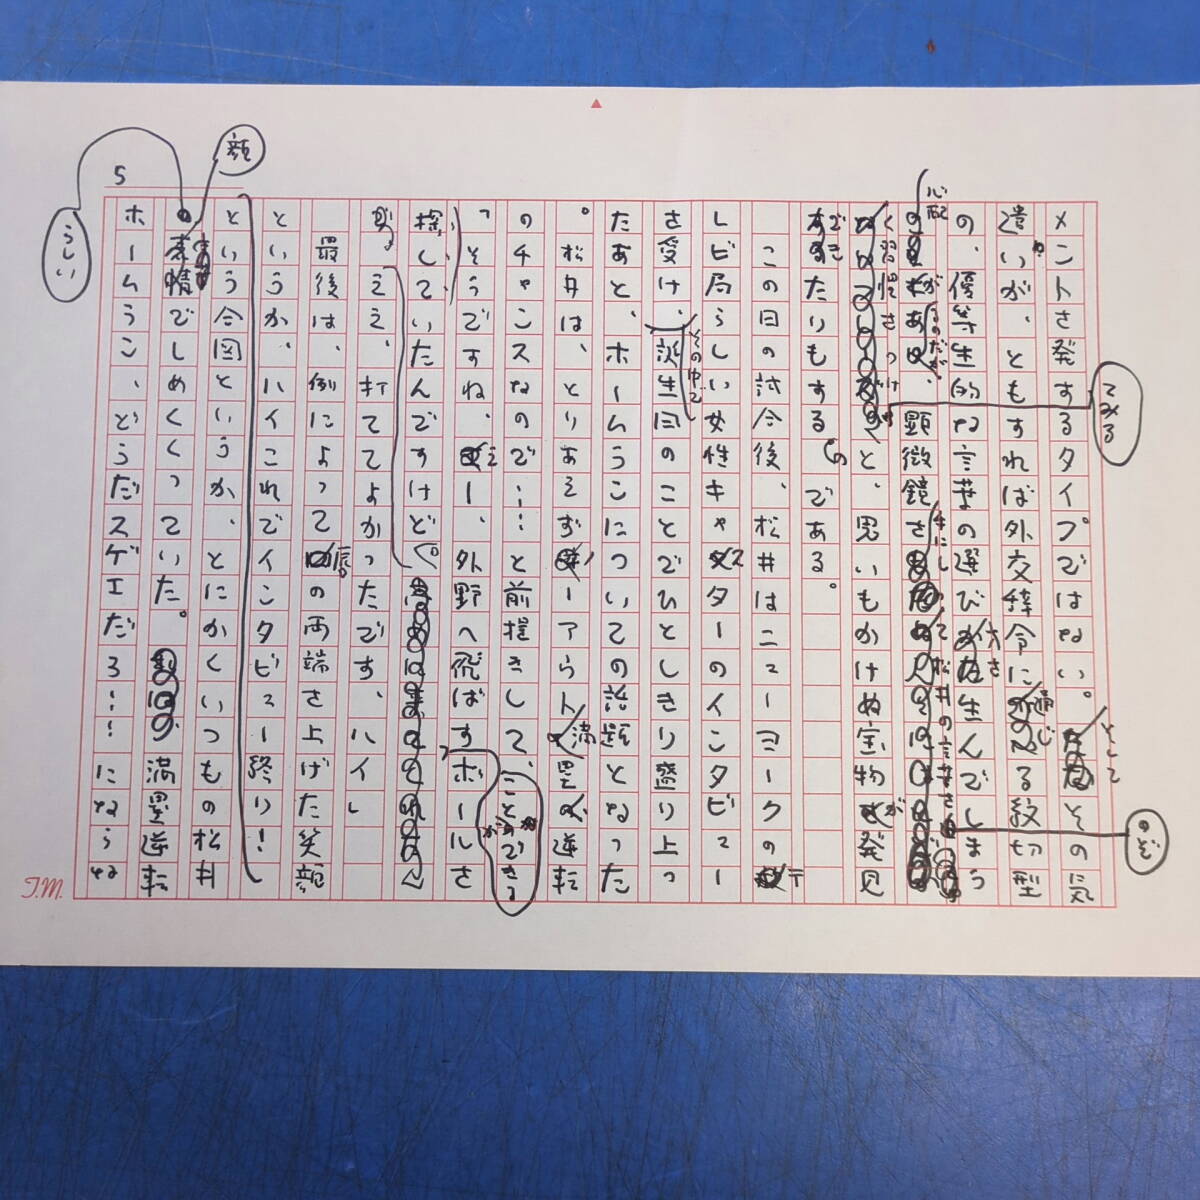 5
メントを発するタイプではない。そしてその気
遣いが、ともすれば外交辞令に通じる紋切型
の、優等生的な言葉の選び方を生んでしまう
心配があるのだが、顕微鏡を手にして松井の言葉をのぞ
く習慣をつけてみると、思いもかけぬ宝物が発見
できたりもするのである。
この日の試合後、松井はニューヨークのテ
レビ局らしい女性キャスターのインタビュー
を受け、その中で誕生日のことでひとしきり盛り上っ
たあと、ホームランについての話題となった
。松井は、とりあえずノーアウト満塁逆転
のチャンスなので……と前提をして、
「そうですね、えー、外野へ飛ばすことができるボールを
探していたんですけど。
ええ、打ててよかったです、ハイ」
最後は、例によって唇の両端を上げた笑顔
というか、ハイこれでインタビュー終り!
という合図というか、とにかくいつもの松井
らしい表情でしめくくっていた。満塁逆転
ホームラン、どうだスゲエだろ……にならな
T.M.